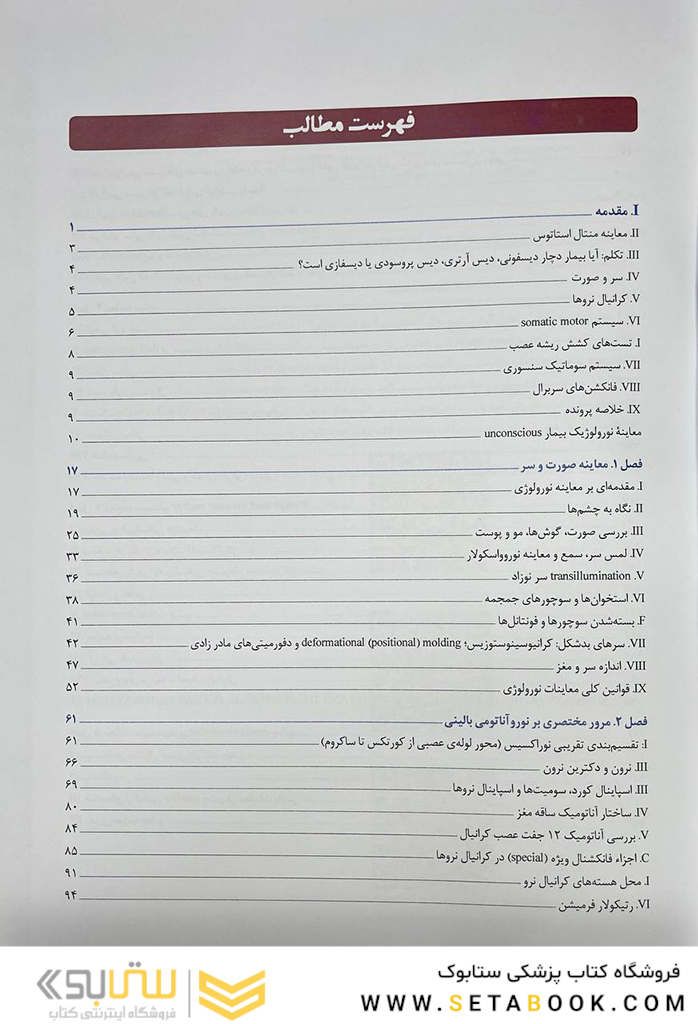 فهرست مطالب
I. مقدمه ۱
II. معاینه منتال استاتوس ۳
III. تکلم: آیا بیمار دچار دیسفونی، دیس آرتری، دیس پروسودی یا دیسفازی است؟ ۴
IV. سر و صورت ۴
V. کرانیال نروها ۵
VI. سیستم somatic motor ۶
I. تست‌های کشش ریشه عصب ۸
VII. سیستم سوماتیک سنسوری ۹
VIII. فانکشن‌های سربرال ۹
IX. خلاصه پرونده ۹
معاینهٔ نورولوژیک بیمار unconscious ۱۰
فصل ۱. معاینه صورت و سر ۱۷
I. مقدمه‌ای بر معاینه نورولوژی ۱۷
II. نگاه به چشم‌ها ۱۹
III. بررسی صورت، گوش‌ها، مو و پوست ۲۵
IV. لمس سر، سمع و معاینه نوروواسکولار ۳۳
V. transillumination سر نوزاد ۳۶
VI. استخوان‌ها و سوچورهای جمجمه ۳۸
F. بسته‌شدن سوچورها و فونتانل‌ها ۴۱
VII. سرهای بدشکل: کرانیوسینوستوزیس؛ deformational (positional) molding و دفورمیتی‌های مادر زادی ۴۲
VIII. اندازه سر و مغز ۴۷
IX. قوانین کلی معاینات نورولوژی ۵۲
فصل ۲. مرور مختصری بر نوروآناتومی بالینی ۶۱
I: تقسیم‌بندی تقریبی نوراکسیس (محور لوله‌ی عصبی از کورتکس تا ساکروم) ۶۱
III. نرون و دکترین نرون ۶۶
III. اسپاینال کورد، سومیت‌ها و اسپاینال نروها ۶۹
IV. ساختار آناتومیک ساقه مغز ۸۰
V. بررسی آناتومیک ۱۲ جفت عصب کرانیال ۸۴
C. اجزاء فانکشنال ویژه (special) در کرانیال نروها ۸۵
I. محل هسته‌های کرانیال نرو ۹۱
VI. رتیکولار فرمیشن ۹۴
فروشگاه کتاب پزشکی ستابوک
WWW.SETABOOK.COM
ستابوک
فروشگاه اینترنتی کتاب